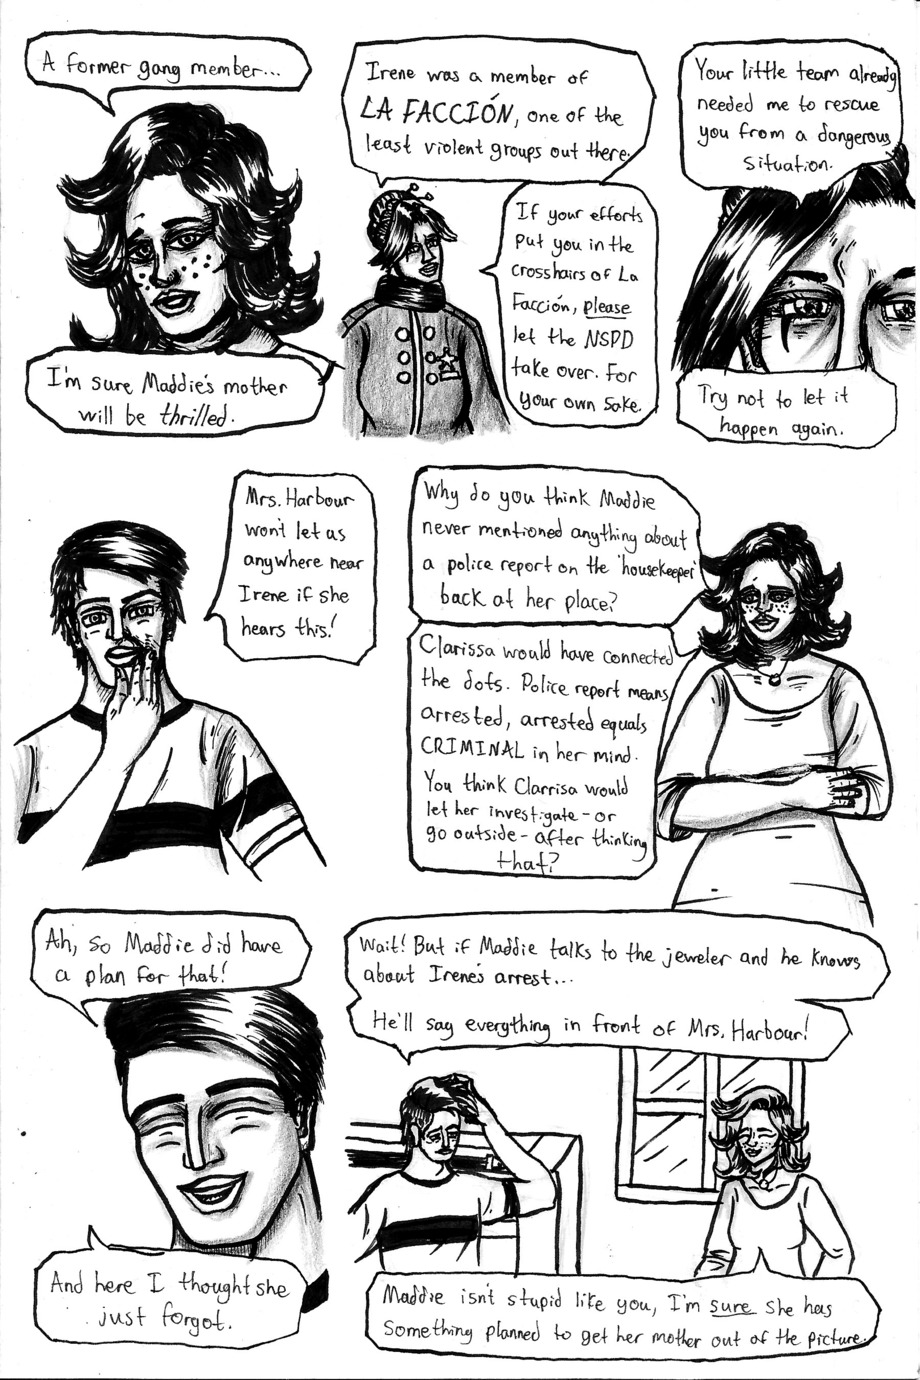 A former gang member...
I'm sure Maddie's mother
will be thrilled.
Irene was a member of
LA FACCIÓN, one of the
least violent groups out there.
If your efforts
put you in the
crosshairs of La
Facción, please
let the NSPD
take over. For
your own sake.
Your little team already
needed me to rescue
you from a dangerous
situation.
Try not to let it
happen again.
Mrs. Harbour
won't let us
anywhere near
Irene if she
hears this!
Why do you think Maddie
never mentioned anything about
a police report on the 'housekeeper'
back at her place?
Clarissa would have connected
the dots. Police report means
arrested, arrested equals
CRIMINAL in her mind.
You think Clarrisa would
let her investigate - or
go outside - after thinking
that?
Ah, so Maddie did have
a plan for that!
And here I thought she
just forgot.
Wait! But if Maddie talks to the jeweler and he knows
about Irene's arrest...
He'll say everything in front of Mrs. Harbour!
Maddie isn't stupid like you, I'm sure she has
something planned to get her mother out of the picture.